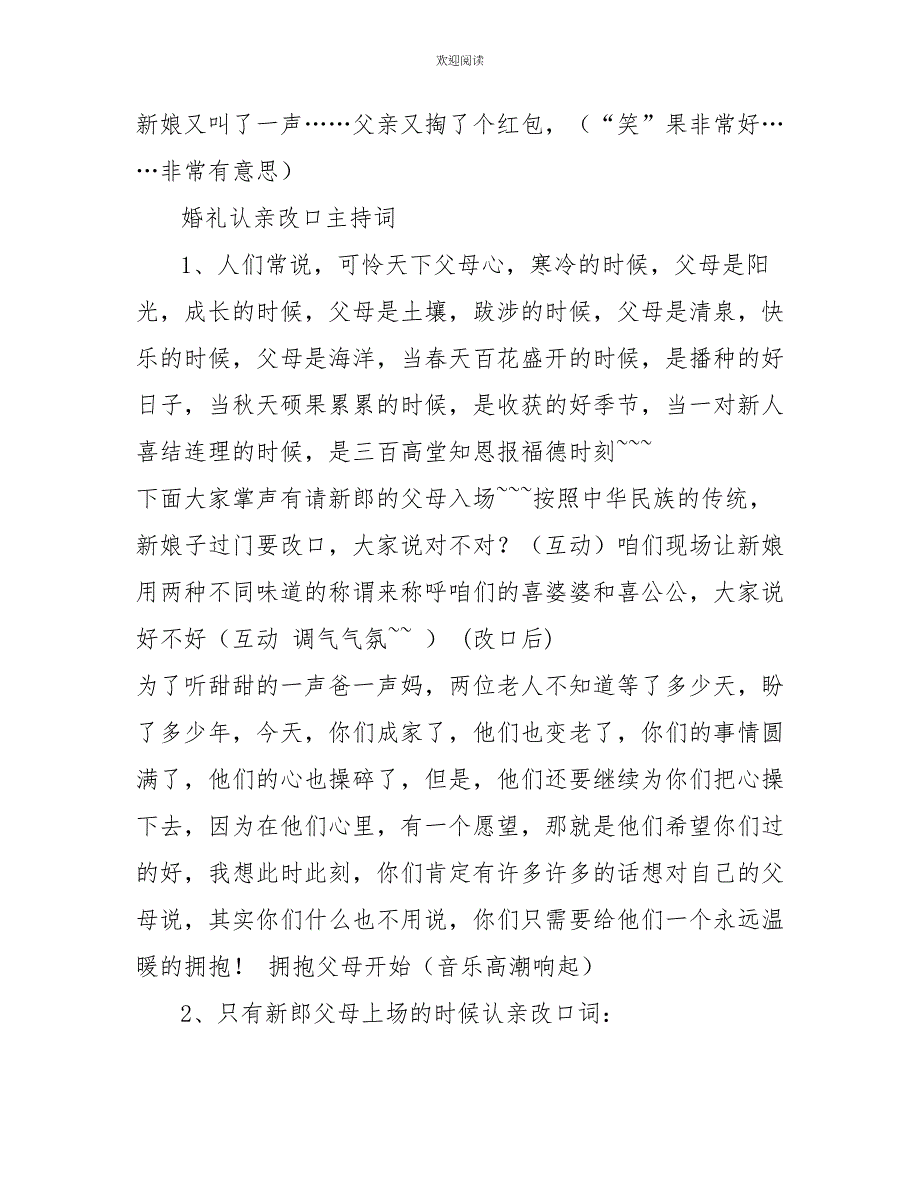 欢迎阅读
新娘又叫了一声……父亲又掏了个红包，（“笑”果非常好…
…非常有意思）
婚礼认亲改口主持词
1、人们常说，可怜天下父母心，寒冷的时候，父母是阳
光，成长的时候，父母是土壤，跋涉的时候，父母是清泉，快
乐的时候，父母是海洋，当春天百花盛开的时候，是播种的好
日子，当秋天硕果累累的时候，是收获的好季节，当一对新人
喜结连理的时候，是三百高堂知恩报福德时刻~~~
下面大家掌声有请新郎的父母入场~~~按照中华民族的传统，
新娘子过门要改口，大家说对不对？（互动）咱们现场让新娘
用两种不同味道的称谓来称呼咱们的喜婆婆和喜公公，大家说
好不好（互动 调气气氛~~ ） (改口后)
为了听甜甜的一声爸一声妈，两位老人不知道等了多少天，盼
了多少年，今天，你们成家了，他们也变老了，你们的事情圆
满了，他们的心也操碎了，但是，他们还要继续为你们把心操
下去，因为在他们心里，有一个愿望，那就是他们希望你们过
的好，我想此时此刻，你们肯定有许多许多的话想对自己的父
母说，其实你们什么也不用说，你们只需要给他们一个永远温
暖的拥抱！ 拥抱父母开始（音乐高潮响起）
2、只有新郎父母上场的时候认亲改口词：